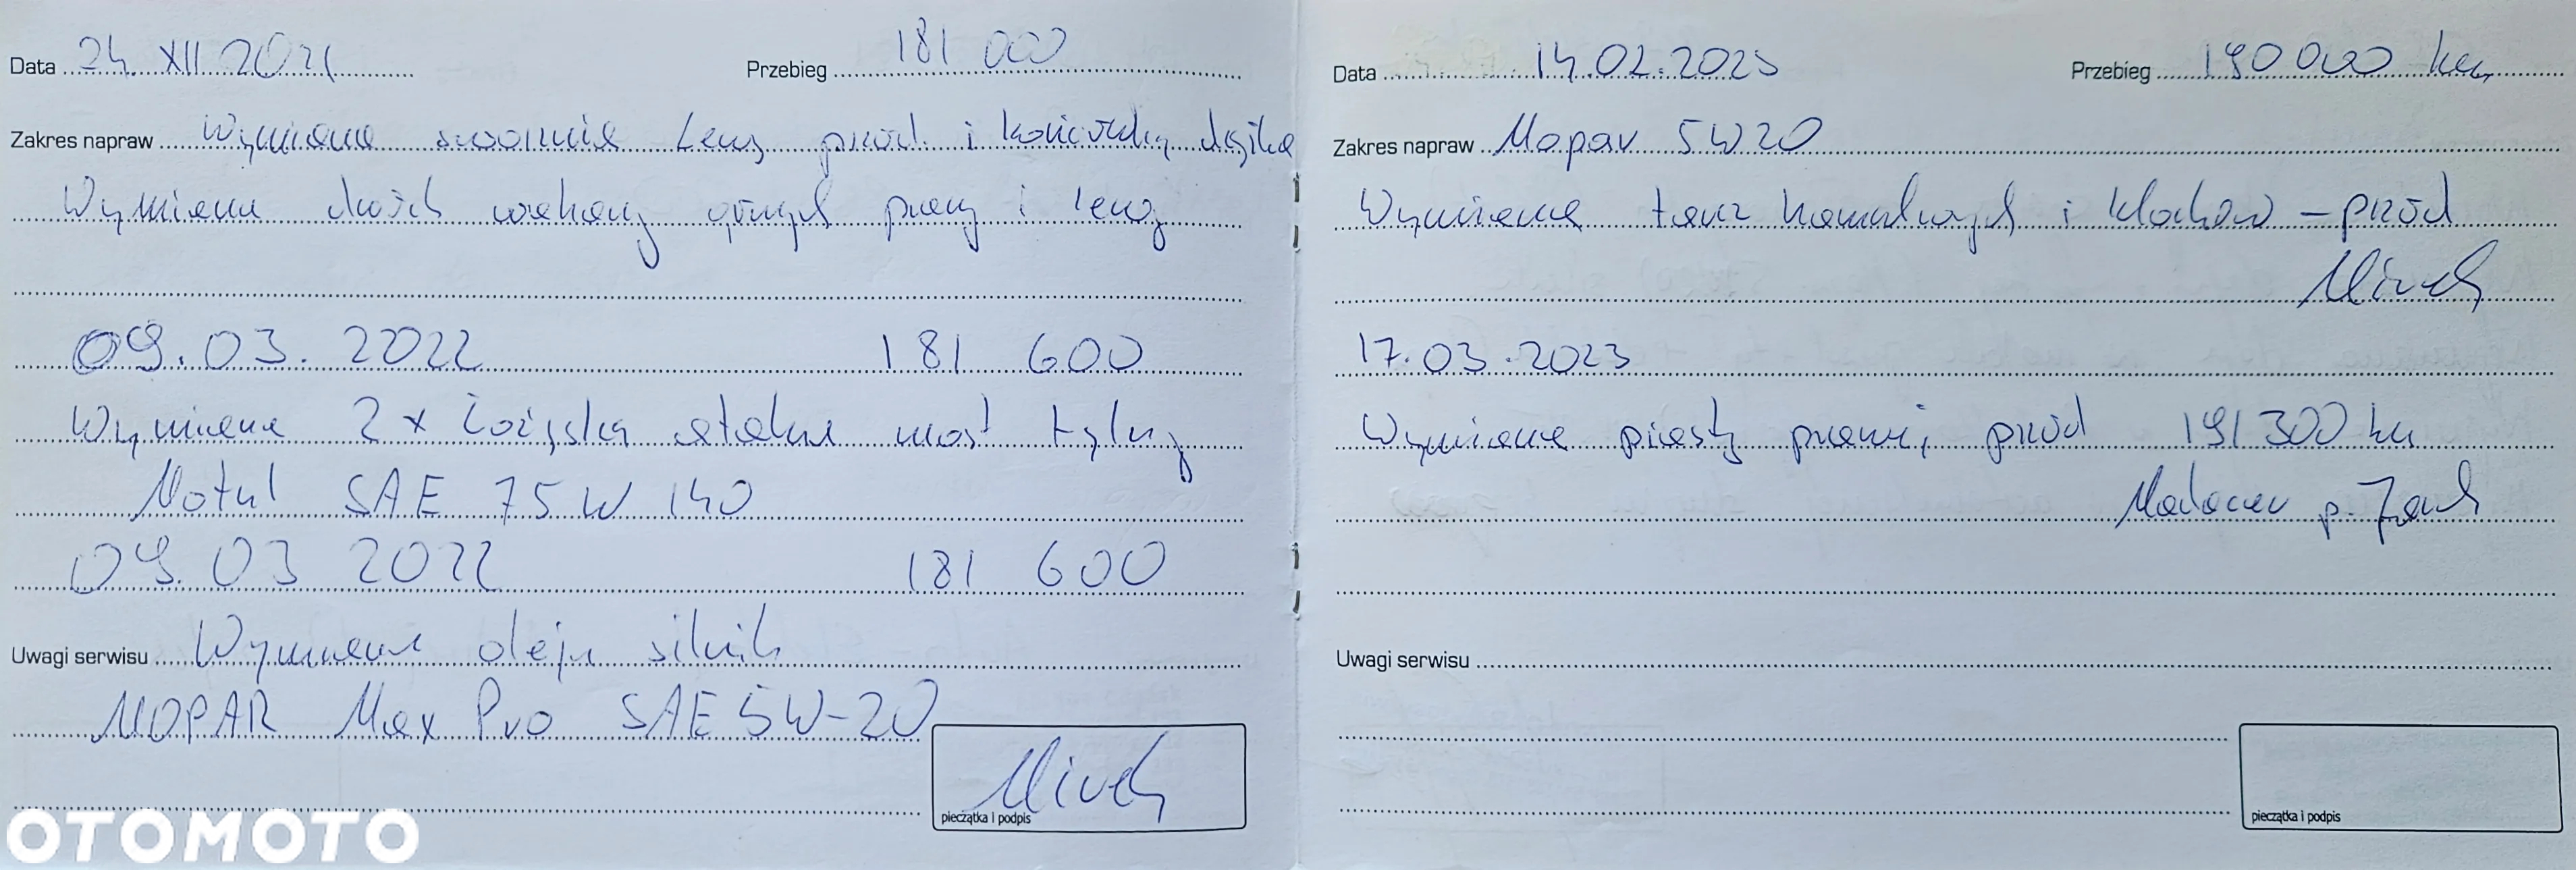 Data 24. XII 2021 Przebieg 181 000
Zakres napraw Wymiana sworznia lewy przód i końcówką drążka
Wymiana dwóch wahaczy górnych prawy i lewy
09.03.2022 181 600
Wymiana 2 x łożyska ataku most tylny
Motul SAE 75W 140
09.03 2022 181 600
Uwagi serwisu Wymiana oleju silnik
MOPAR Max Pro SAE 5W-20
Mirek
pieczątka i podpis
OTOMOTO
Data 14.02.2023 Przebieg 190 000 km
Zakres napraw Mopar 5W20
Wymiana tarcz hamulcowych i klocków – przód
Mirek
17.03.2023
Wymiana piasty prawej przód 191 300 km
p.
Uwagi serwisu
pieczątka i podpis